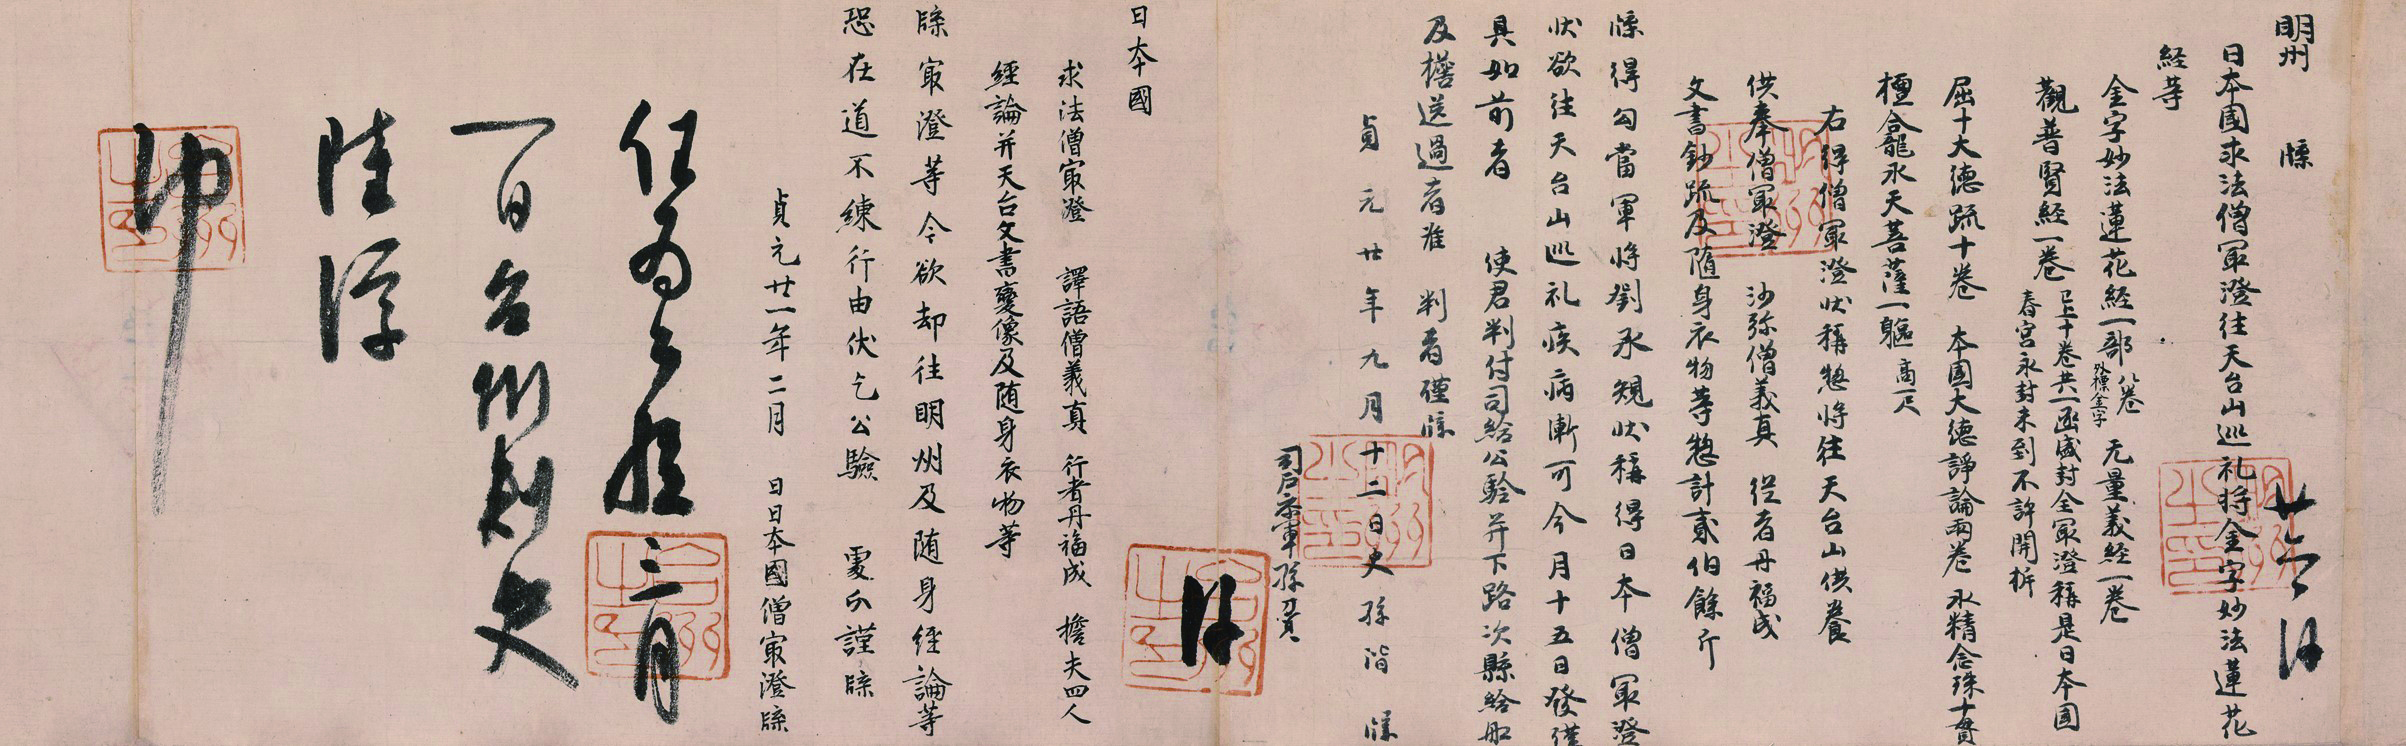 明州 牒
廿六日
日本國求法僧冣澄往天台山巡礼将金字妙法蓮花
経等
金字妙法蓮花経一部 八卷 外標金字 无量義経一卷
觀普賢経一卷 已上十卷共一函盛封全冣澄稱是日本國
春宮永封未到不許開拆
屈十大德踈十卷 本国大德諍論兩卷 水精念珠十貫
檀龕水天菩薩一軀 高一尺
右得僧冣澄状稱惣将往天台山供養
供奉僧冣澄 沙弥僧義真 從者丹福成
文書鈔踈及随身衣物等惣計貳伯餘斤
牒得勾當軍将劉承規状稱得日本僧冣澄
状欲往天台山巡礼疾病漸可今月十五日發謹
具如前者 使君判付司給公驗并下路次縣給舡
及擔送過者准 判者謹牒
貞元廿年九月十二日史孫階 牒
司戶参軍孫
日本國
求法僧冣澄 譯語僧義真 行者丹福成 擔夫四人
經論并天台文書變像及随身衣物等
牒冣澄等今欲却往明州及随身經論等
恐在道不練行由伏乞公驗 處分謹牒
貞元廿一年二月 日日本國僧冣澄牒
任為公驗三月
一日台州刺史
陸淳
印